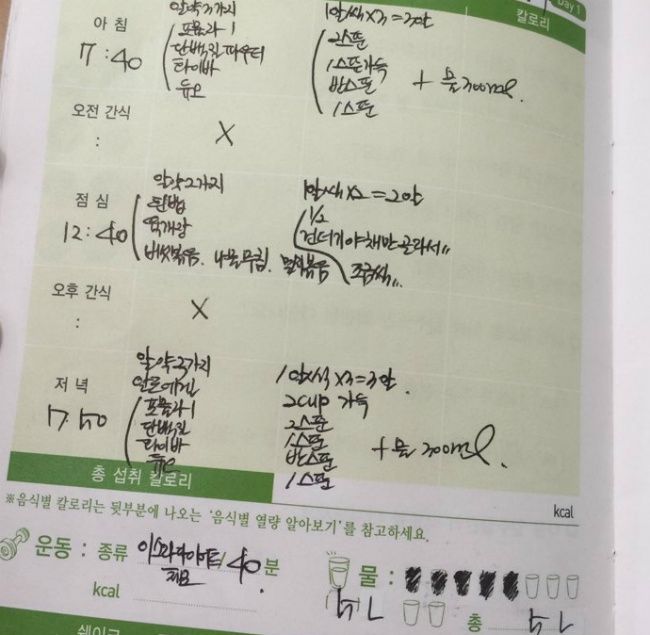 Day 1
칼로리
아침 알약3가지 1알씩×3=3알
7:40 포뮬라1 2스푼
단백질파우더 1스푼가득
화이바 반스푼 + 물300ml.
듀오 1스푼
오전 간식
: X
점심 알약2가지 1알씩×2=2알
12:40 흰밥 1/2
육개장 건더기야채만골라서
버섯볶음. 나물무침. 멸치볶음 조금씩
오후 간식
: X
저녁 알약3가지 1알씩×3=3알.
알로에겔 2cup 가득
17:50 포뮬라1 2스푼
단백질 1스푼
화이바 반스푼 + 물 300ml.
듀오 1스푼
총 섭취 칼로리
kcal
※음식별 칼로리는 뒷부분에 나오는 '음식별 열량 알아보기'를 참고하세요.
운동 : 종류 40분
kcal
물 :
총